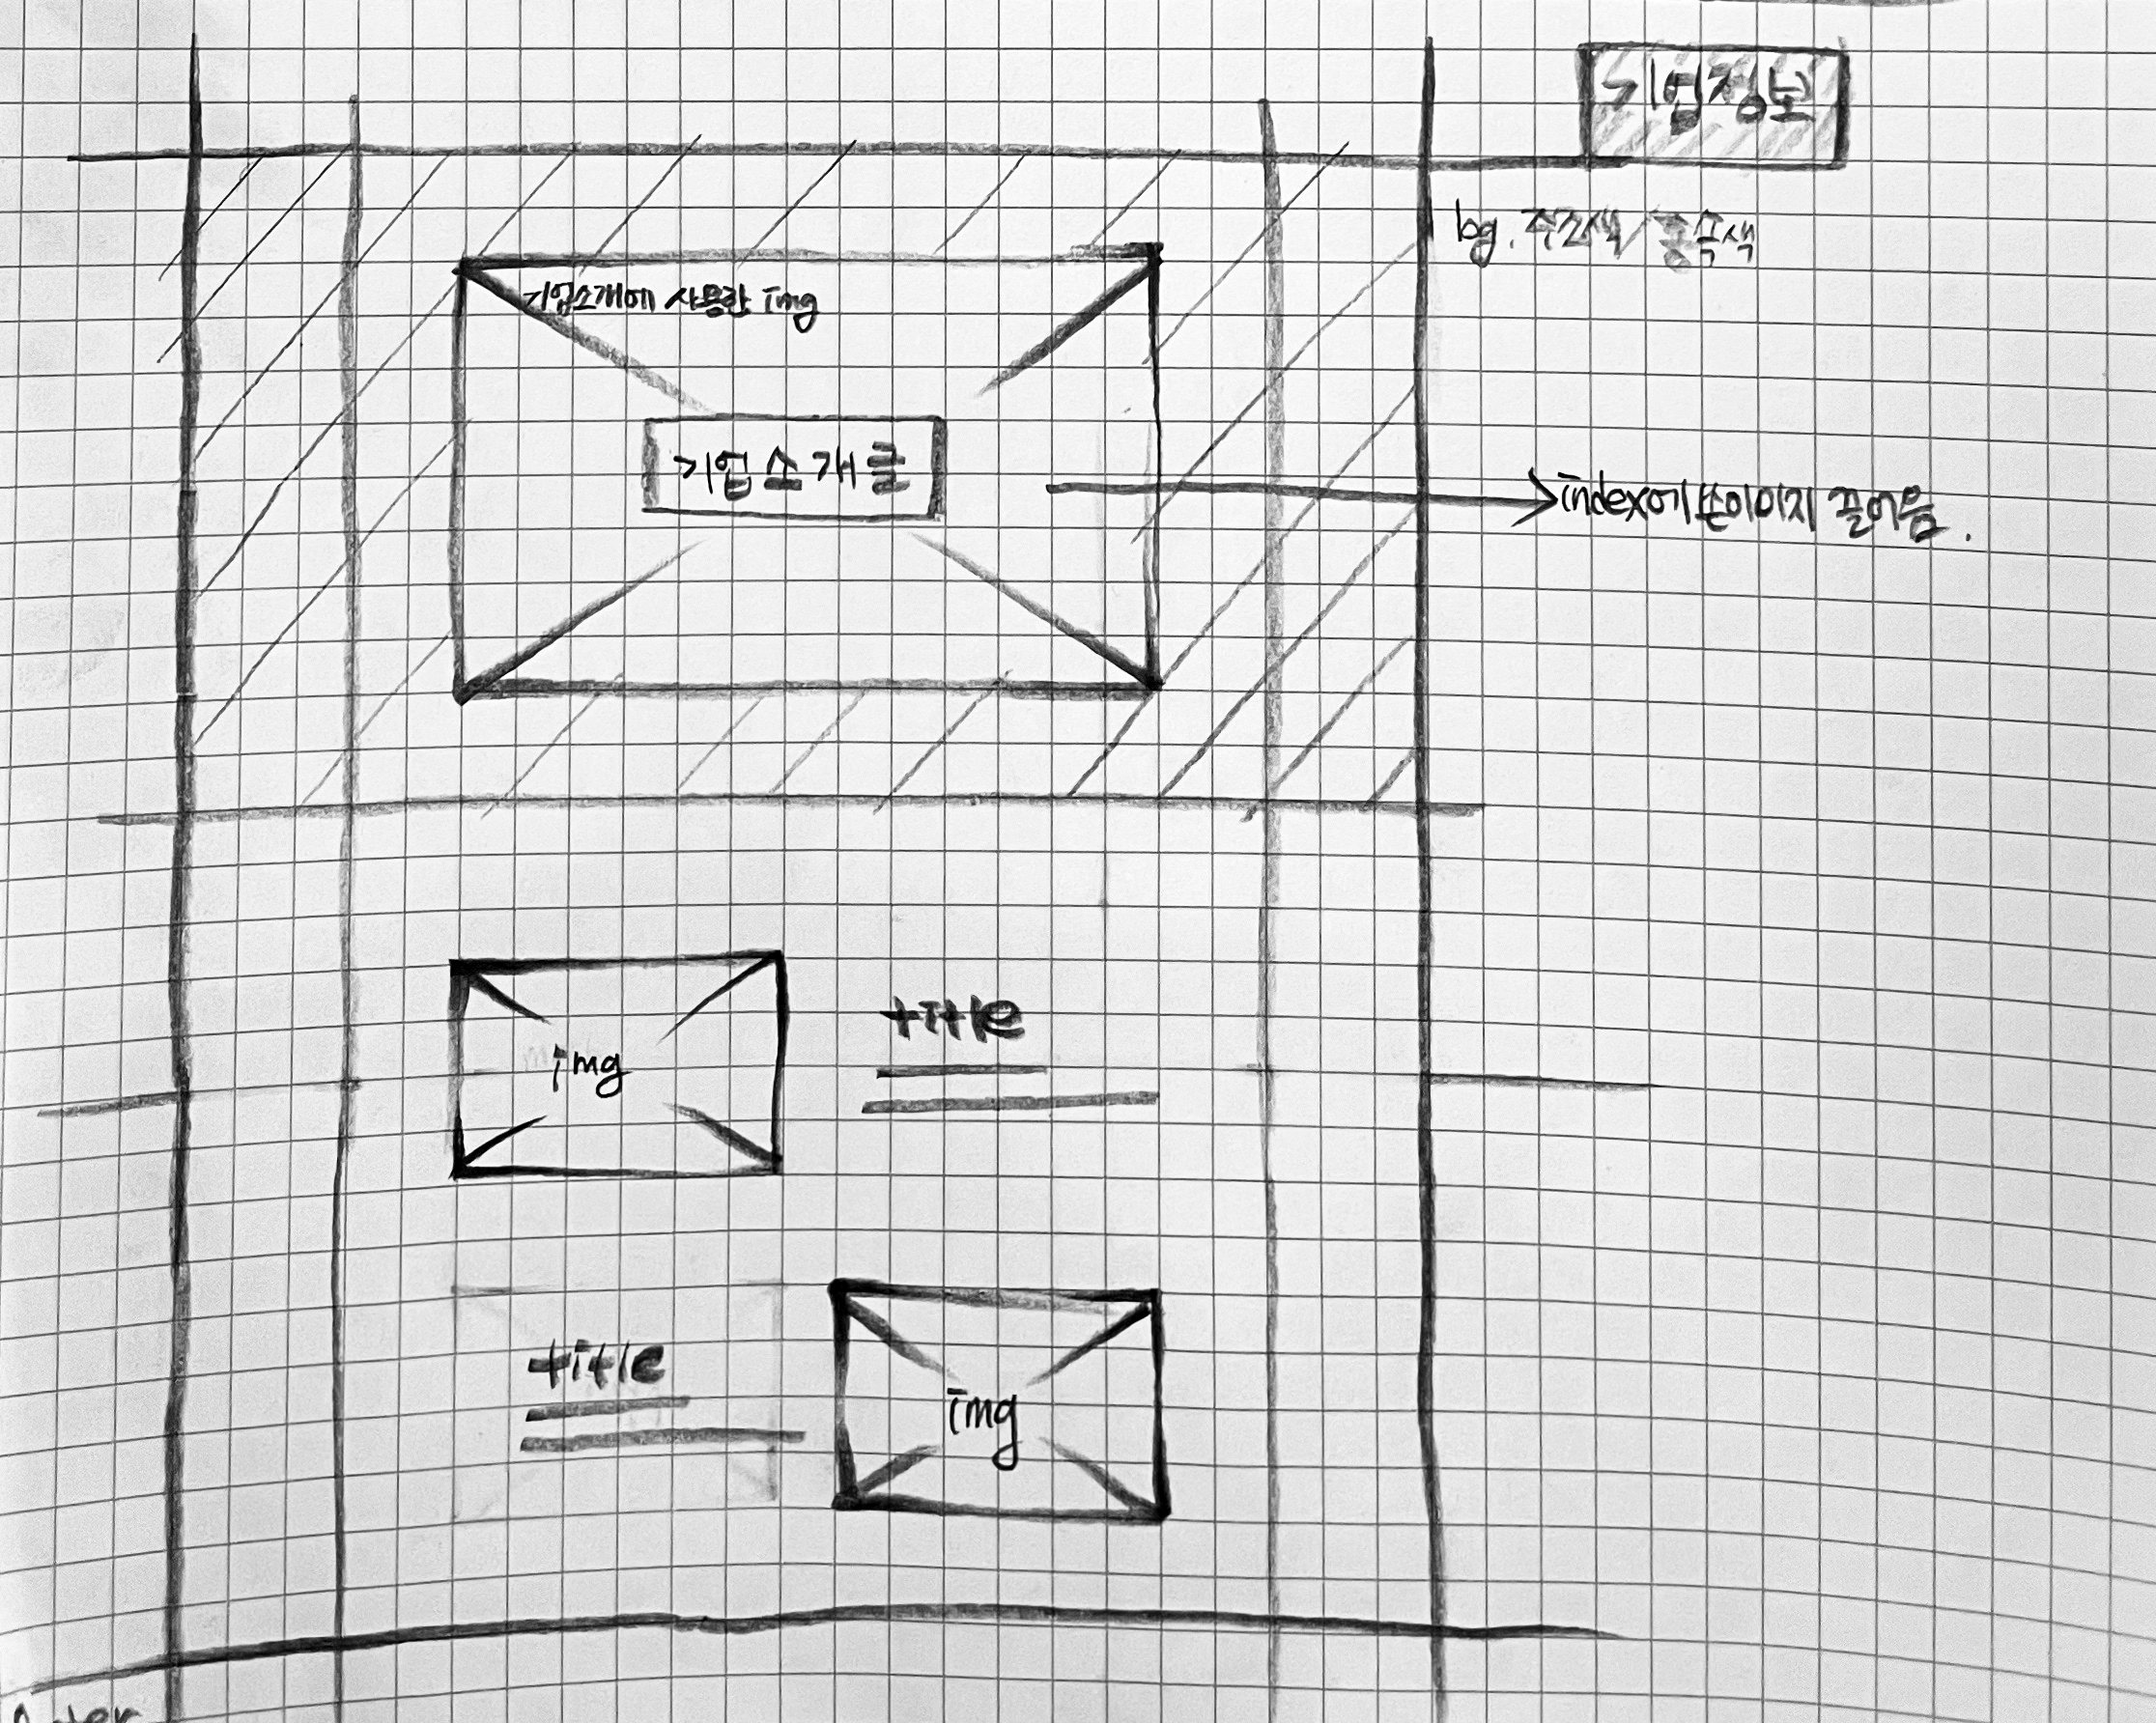 기업정보
bg. 주조색/종속색
기업소개에 사용한 img
기업소개글
index에 쓴이미지 끌어옴.
img
title
title
img